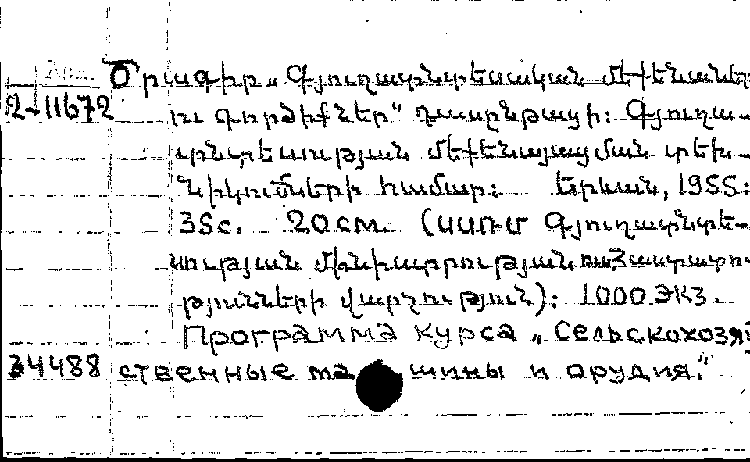 Ծրագիր „Գյուղատնտեսական մեքենաներ
2-11672 ու գործիքներ“ դասընթացի: Գյուղա-
տնտեսության մեքենայացման տեխ-
նիկումների համար: Երևան, 1955:
35с. 20см. (ՍՍՌՄ Գյուղատնտե-
սության մինիստրության
թյունների վարչություն): 1000 экз.
Программа курса „Сельскохозяй
34488 ственные машины и орудия."